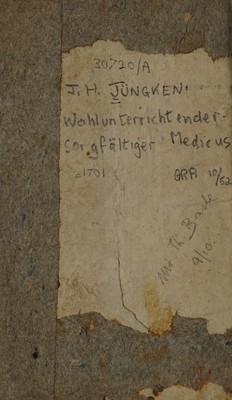 30720/A
J. H. JÜNGKEN.
Wohlunterrichtender-
Sorgfältiger Medicus
1701
GRA 10/52
Th.
9/10.